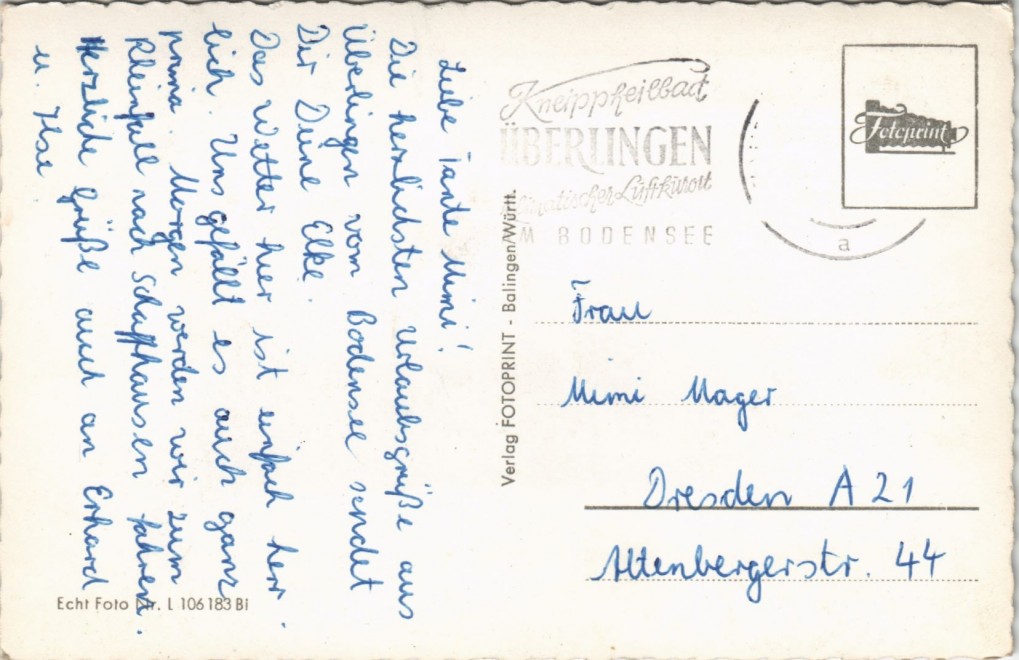 Liebe Tante Mimi!
Die herzlichsten Urlaubsgrüße aus
Überlingen vom Bodensee sendet
Dir Deine Elke.
Das Wetter hier ist einfach herr-
lich. Uns gefällt es auch ganz
prima. Morgen werden wir zum
Rheinfall nach Schaffhausen fahren.
Herzliche Grüße auch an Erhard
u. Ilse
Echt Foto Nr. L 106183 Bi
Verlag FOTOPRINT - Balingen/Württ.
Kneippheilbad
ÜBERLINGEN
Klimatischer Luftkurort
AM BODENSEE
a
Fotoprint
Frau
Mimi Mager
Dresden A 21
Altenbergerstr. 44